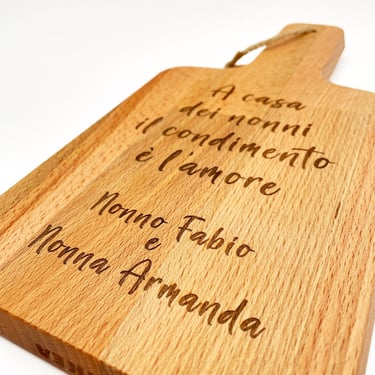 A casa
dei nonni
il condimento
è l'amore
Nonno Fabio
e
Nonna Armanda